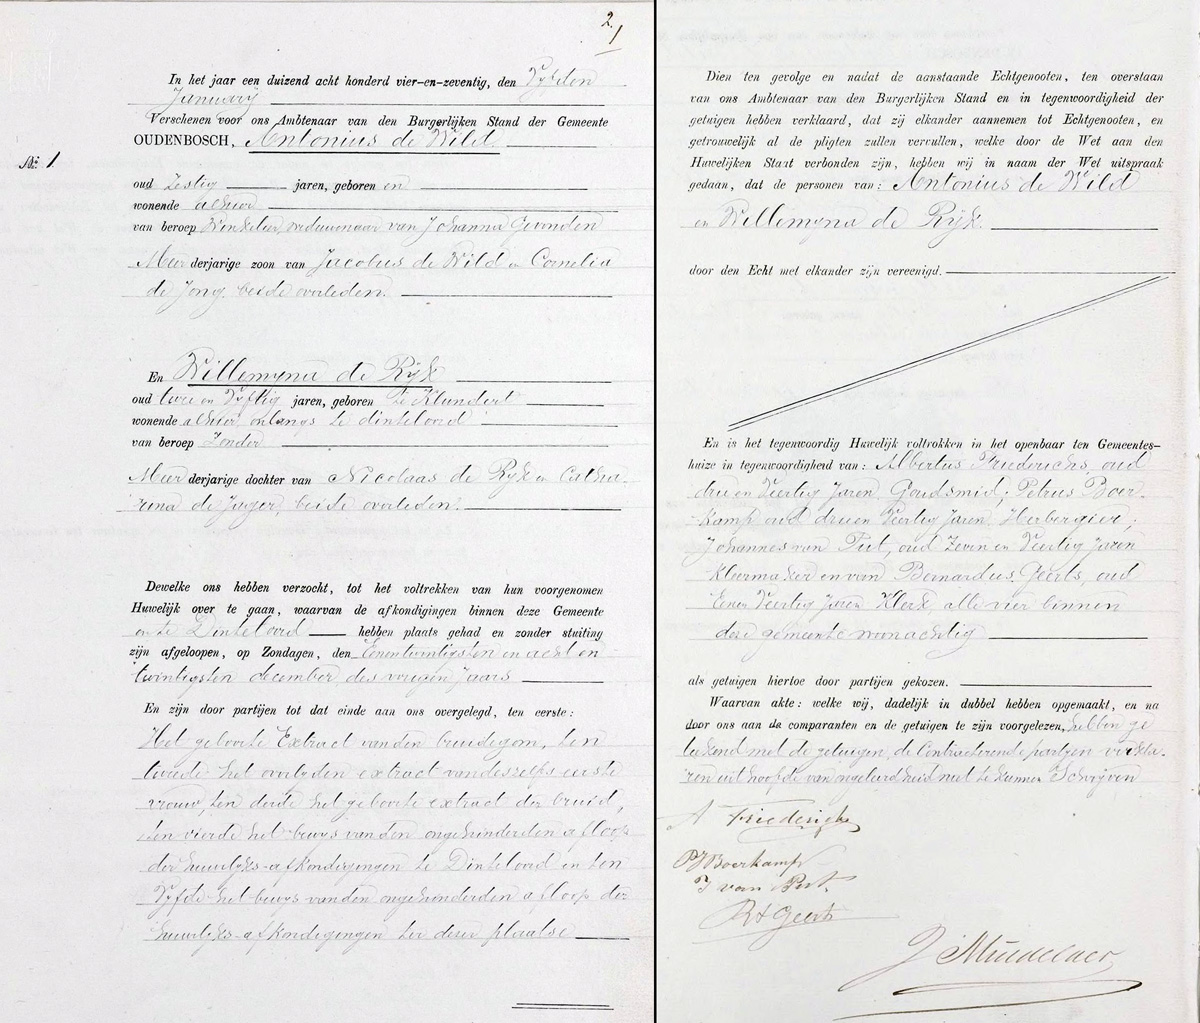 2.
1
In het jaar een duizend acht honderd vier-en-zeventig, den Vyfden
January
Verschenen voor ons Ambtenaar van den Burgerlijken Stand der Gemeente
OUDENBOSCH, Antonius de Wild
No. 1.
oud Zestig jaren, geboren en
wonende alhier
van beroep Winkelier, weduwenaar van Johanna
Meerderjarige zoon van Jacobus de Wild en Cornelia
de Jong, beide overleden.
En Willemyna de Ryk
oud twee en Vyftig jaren, geboren te Klundert
wonende alhier, onlangs te dinteloord
van beroep Zonder
Meerderjarige dochter van Nicolaas de Ryk en Catha-
rina de Jager, beide overleden.
Dewelke ons hebben verzocht, tot het voltrekken van hun voorgenomen
Huwelijk over te gaan, waarvan de afkondigingen binnen deze Gemeente
en te Dinteloord hebben plaats gehad en zonder stuiting
zijn afgeloopen, op Zondagen, den Eenentwintigsten en acht en
twintigsten december des vorigen Jaars
En zijn door partijen tot dat einde aan ons overgelegd, ten eerste:
Het geboorte Extract van den bruidegom, ten
tweede het overlyden extract van deszelfs eerste
vrouw, ten derde het geboorte extract der bruid,
ten vierde het bewys van den ongehinderden afloop
der huwelyks-afkondigingen te Dinteloord en ten
Vyfde het bewys van den ongehinderden afloop der
huwelyks-afkondigingen ter dezer plaatse
Dien ten gevolge en nadat de aanstaande Echtgenooten, ten overstaan
van ons Ambtenaar van den Burgerlijken Stand en in tegenwoordigheid der
getuigen hebben verklaard, dat zij elkander aannemen tot Echtgenooten, en
getrouwelijk al de pligten zullen vervullen, welke door de Wet aan den
Huwelijken Staat verbonden zijn, hebben wij in naam der Wet uitspraak
gedaan, dat de personen van: Antonius de Wild
en Willemyna de Ryk.
door den Echt met elkander zijn vereenigd.
En is het tegenwoordig Huwelijk voltrokken in het openbaar ten Gemeentes-
huize in tegenwoordigheid van: Albertus Friederichs, oud
drie en Veertig Jaren, Goudsmid; Petrus Boer-
kamp oud drie en Veertig Jaren, Herbergier;
Johannes van Put, oud Zeven en Veertig Jaren
Kleermaker en van Bernardus Geerts, oud
Een en Veertig Jaren Klerk, alle vier binnen
deze gemeente woonachtig
als getuigen hiertoe door partijen gekozen.
Waarvan akte: welke wij, dadelijk in dubbel hebben opgemaakt, en na
door ons aan de comparanten en de getuigen te zijn voorgelezen, hebben ge
teekend met de getuigen, de Contracteerende partyen verkla-
ren uit hoofde van ongeleerdheid niet te kunnen Schryven
A Friederichs
PJ Boerkamp
J van Put.
Geerts
J Mindelaer